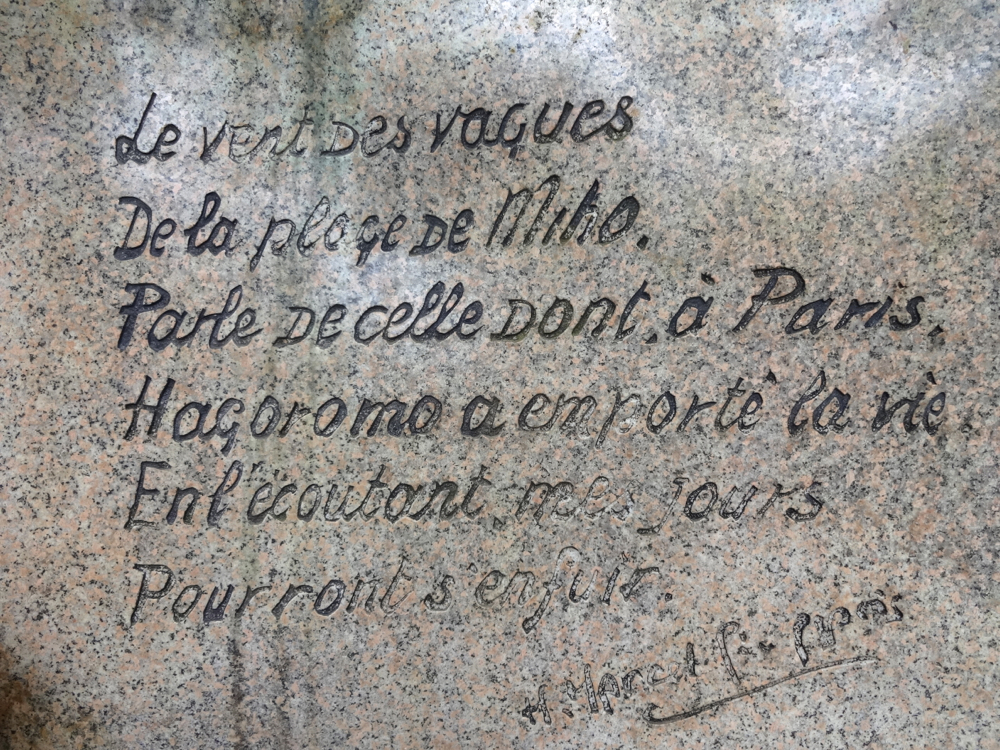 Le vent des vagues
De la plage de Miho.
Parle de celle dont, à Paris,
Hagoromo a emporté la vie.
En l'écoutant, mes jours
Pourront s'enfuir.